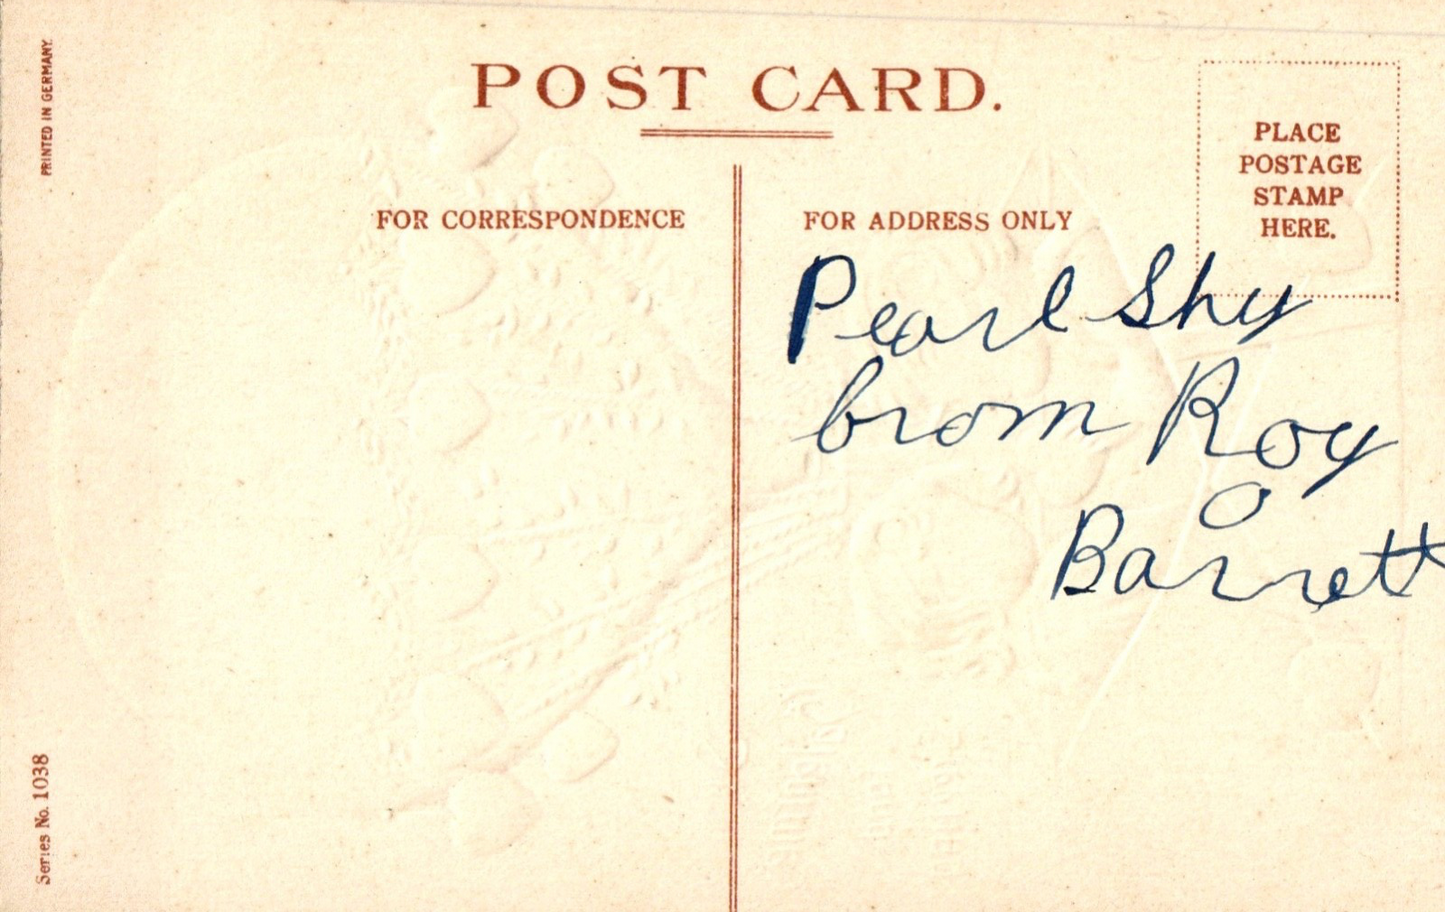 PRINTED IN GERMANY.
POST CARD.
PLACE
POSTAGE
STAMP
HERE.
FOR CORRESPONDENCE
FOR ADDRESS ONLY
Pearl Shy
from Roy
Barrett
Series No. 1038